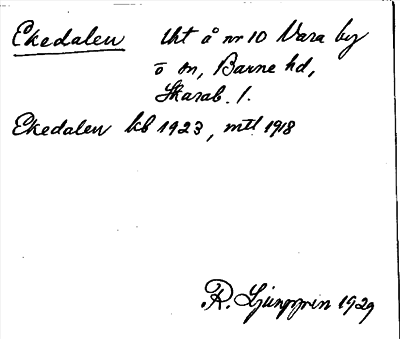 Ekedalen tht å nr 10 Vara by
ö sn, Barne hd,
Skarab. l.
Ekedalen kb 1923, mtl 1918
R. Ljunggren 1929